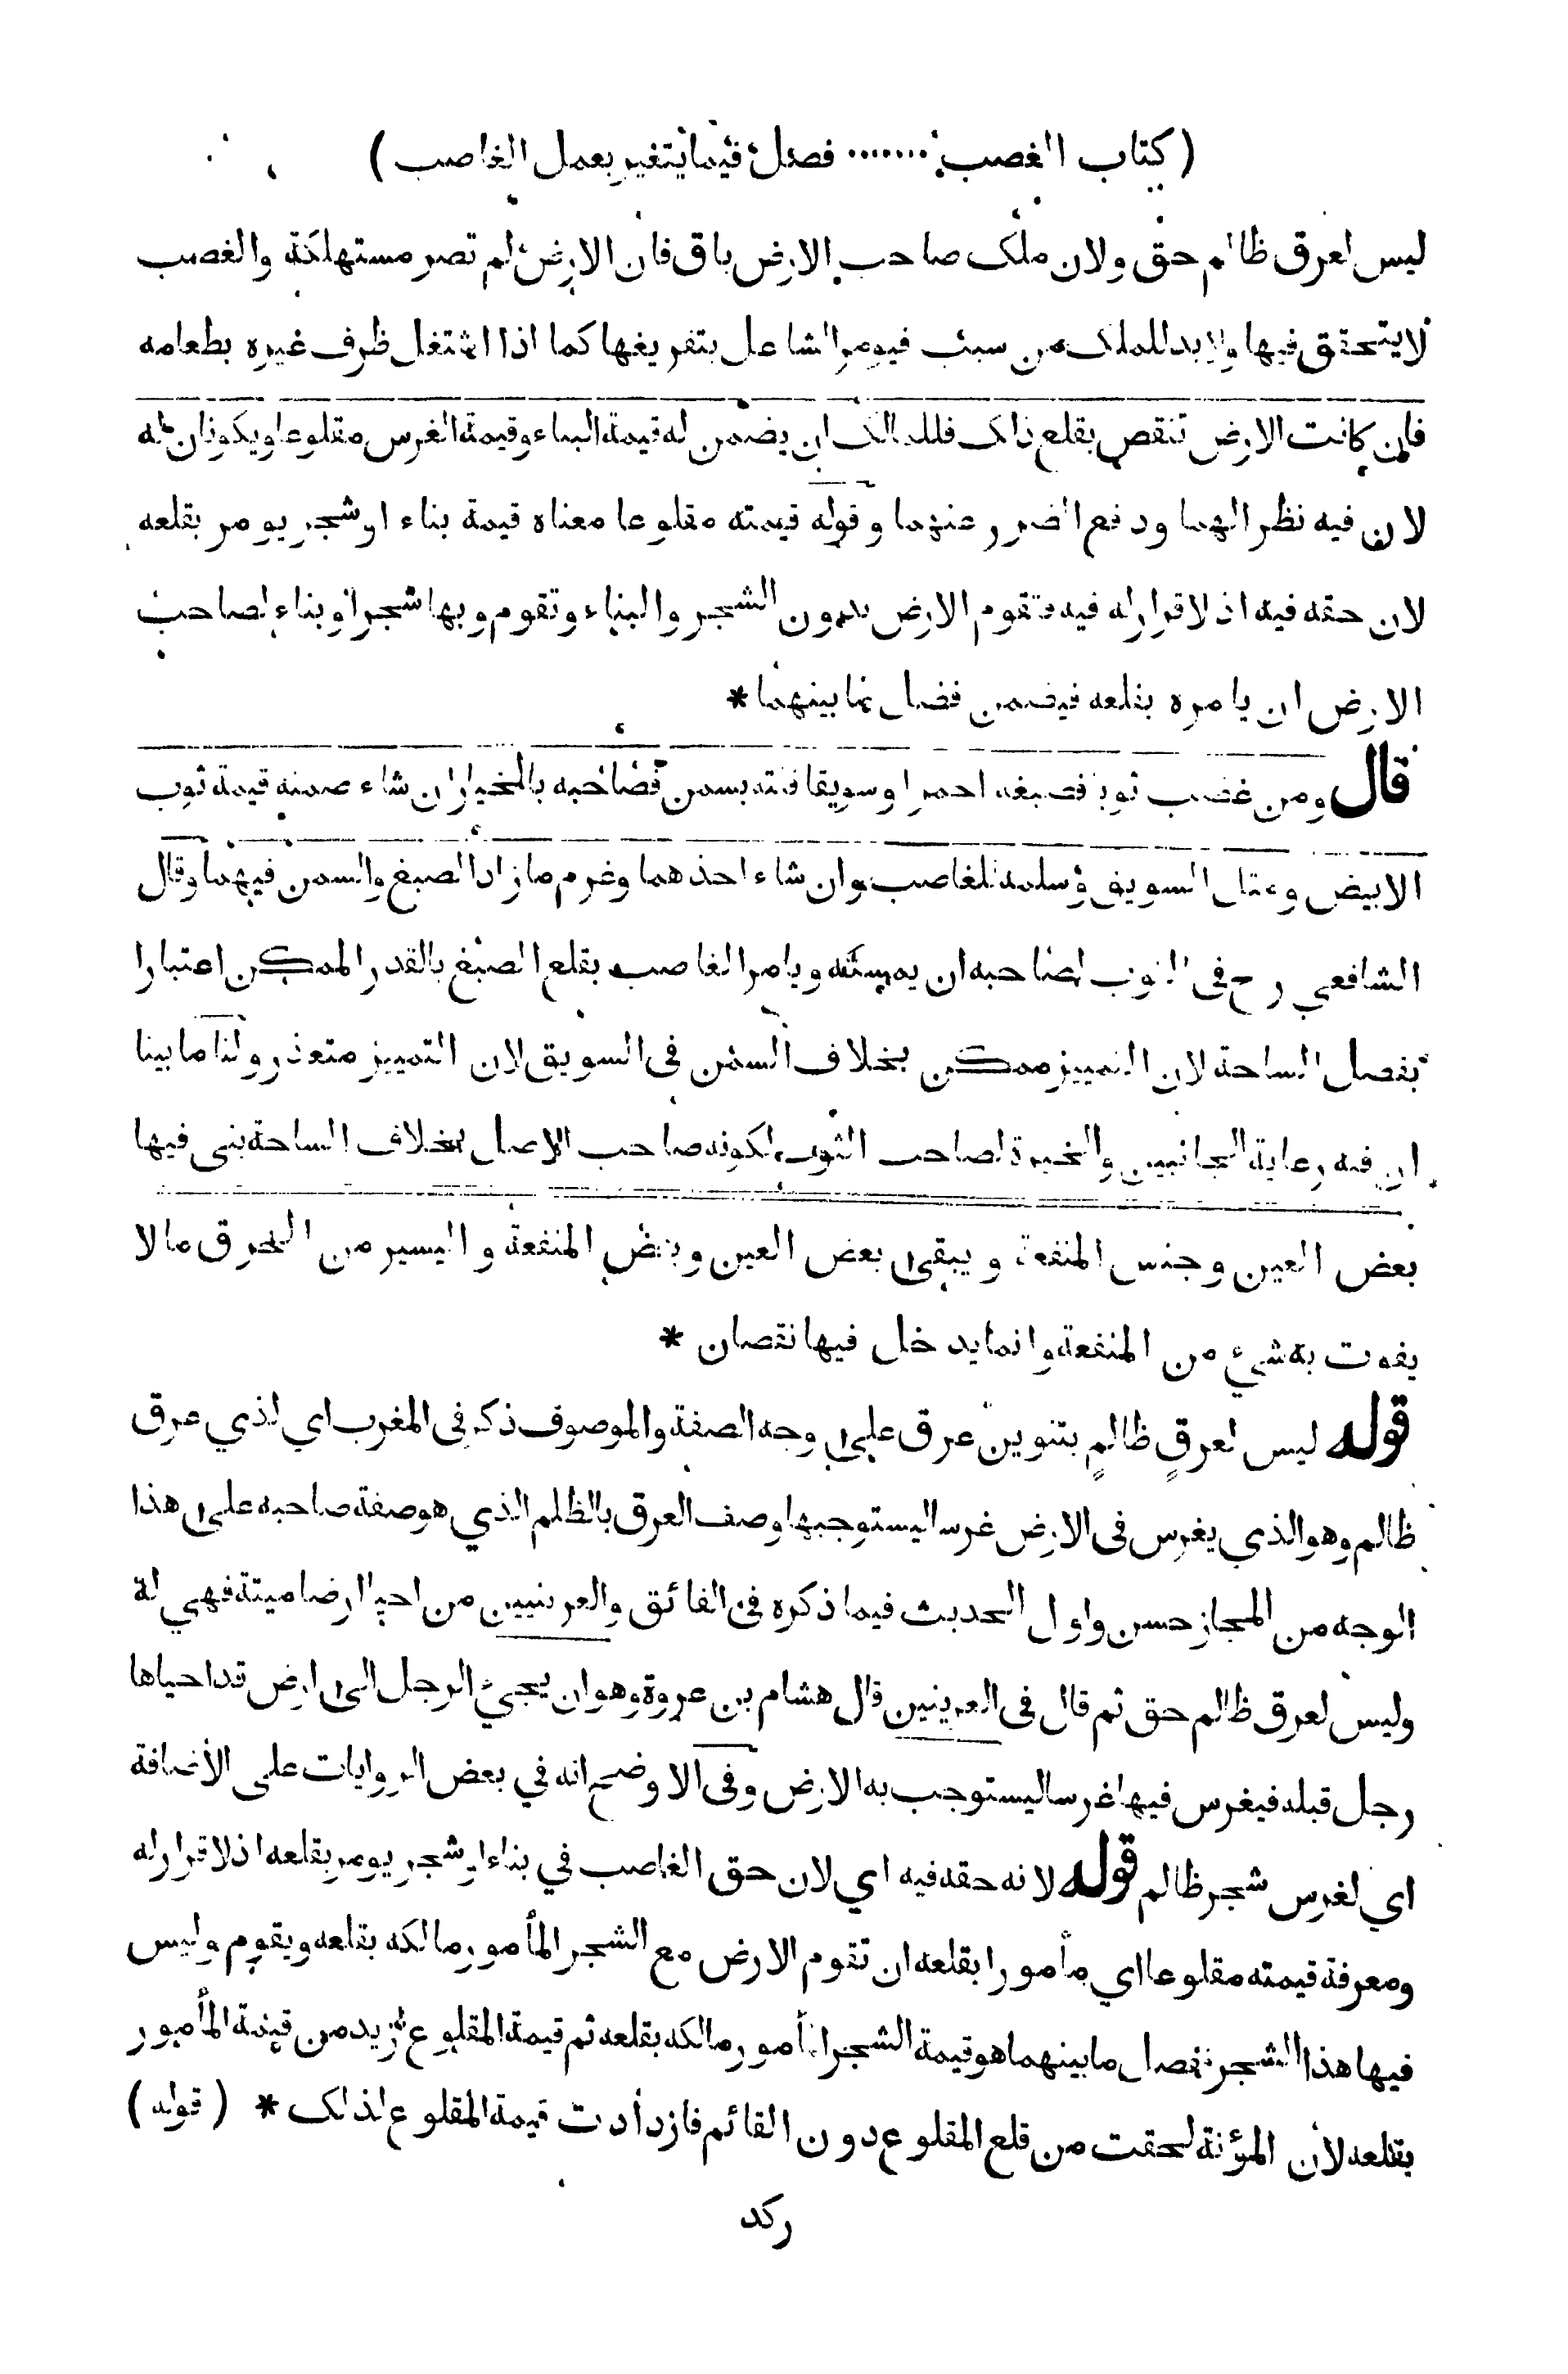 ( كتاب الغصب ٠٠٠٠٠٠٠ فصل فيما يتغير بعمل الغاصب )
ليس لعرق ظالم حق ولان ملك صاحب الارض باق فان الارض لم تصر مستهلكة والغصب
لا يتحقق فيها ولا بد للملك من سبب فيومر الشاغل بتفريغها كما اذا اشتغل ظرف غيره بطعامه
فان كانت الارض تنقص بقلع ذلك فللمالك ان يضمن له قيمة البناء وقيمة الغرس مقلوعا ويكونان له
لان فيه نظرا لهما ودفع الضرر عنهما وقوله قيمته مقلوعا معناه قيمة بناء او شجر يومر بقلعه
لان حقه فيه اذ لا قرار له فيه فتقوم الارض بدون الشجر والبناء وتقوم وبها شجر او بناء لصاحب
الارض ان يامره بقلعه فيضمن فضل ما بينهما *
قال ومن غصب ثوبا فصبغه احمر او سويقا فلته بسمن فصاحبه بالخيار ان شاء ضمنه قيمة ثوب
الابيض ومثل السويق وسلمه للغاصب وان شاء اخذهما وغرم ما زاد الصبغ والسمن فيهما وقال
الشافعي رح في الثوب لصاحبه ان يمسكه ويامر الغاصب بقلع الصبغ بالقدر الممكن اعتبارا
بفصل الساحة لان التمييز ممكن بخلاف السمن في السويق لان التمييز متعذر ولنا ما بينا
ان فيه رعاية الجانبين والخيرة لصاحب الثوب لكونه صاحب الاصل بخلاف الساحة بنى فيها
بعض العين وجنس المنفعة ويبقى بعض العين وبعض المنفعة واليسير من الخرق ما لا
يفوت به شيء من المنفعة وانما يدخل فيها نقصان *
قوله ليس لعرقٍ ظالمٍ بتنوين عرق على وجه الصفة والموصوف ذكر في المغرب اي لذي عرق
ظالم وهو الذي يغرس في الارض غرسا ليستوجبها وصف العرق بالظلم الذي هو صفة صاحبه على هذا
الوجه من المجاز حسن واول الحديث فيما ذكره في الفائق والعرنيين من احيا ارضا ميتة فهي له
وليس لعرق ظالم حق ثم قال في العرينين قال هشام بن عروة وهو ان يجيء الرجل الى ارض قد احياها
رجل قبله فيغرس فيها غرسا ليستوجب به الارض وفى الاوضح انه في بعض الروايات على الأضافة
اي لغرس شجر ظالم قوله لانه حقه فيه اي لان حق الغاصب في بناء او شجر يومر بقلعه اذ لا قرار له
ومعرفة قيمته مقلوعا اي مأمورا بقلعه ان تقوم الارض مع الشجر المأمور مالكه بقلعه ويقوم وليس
فيها هذا الشجر بفصل ما بينهما هو قيمة الشجر المأمور مالكه بقلعه ثم قيمة المقلوع تزيد من قيمة المأمور
بقلعه لأن المؤنة لحقت من قلع المقلوع دون القائم فازدادت قيمة المقلوع لذلك * ( قوله )
ركد